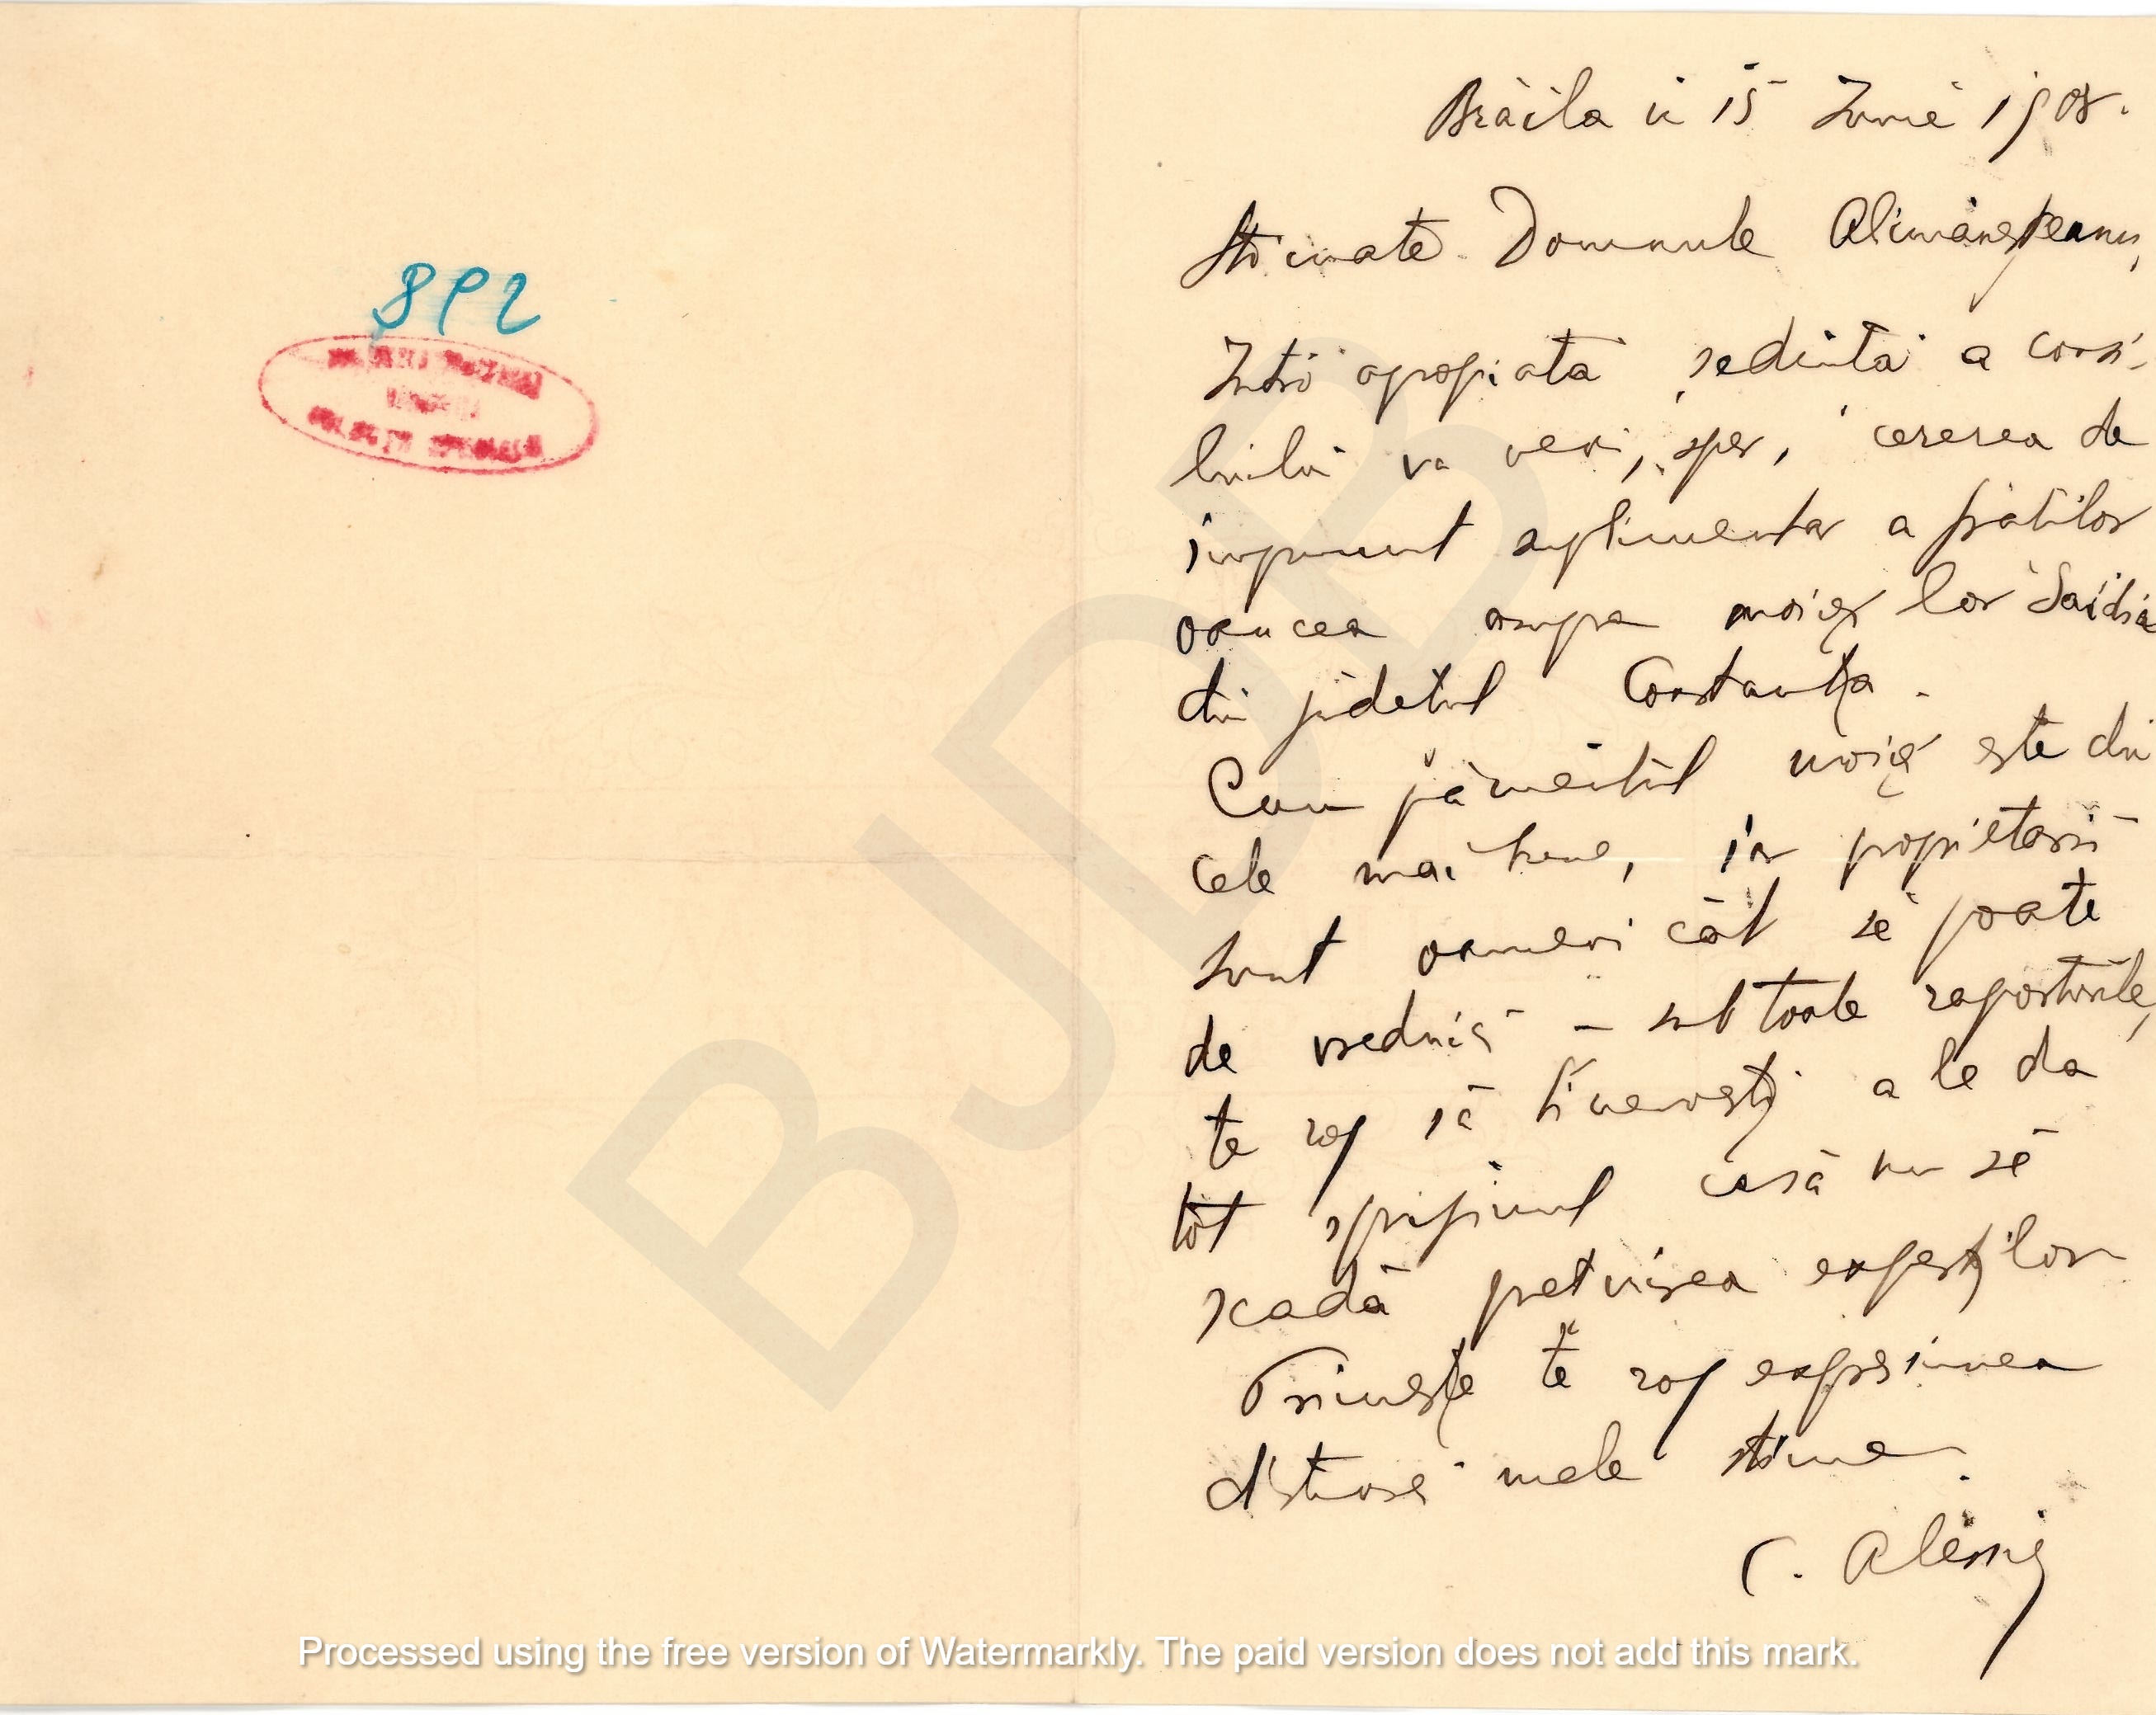 892
Brăila în 15 Iunie 1908.
Stimate Domnule Alimăneșteanu,
Într'o apropiată ședință a consi-
liului va veni, sper, cererea de
împrumut suplimentar a fraților
Oancea asupra moșiei lor
din județul Constanța.
Cum pământul moșiei este din
cele mai bune, iar propietarii
sunt oameni cât se poate
de vrednici – sub toate raporturile,
te rog să binevoești a le da
tot sprijinul ca să nu se
scadă prețuirea experților
Primește te rog expresiunea
distinsei mele stime.
C. Alessiu
BJDB
Processed using the free version of Watermarkly. The paid version does not add this mark.